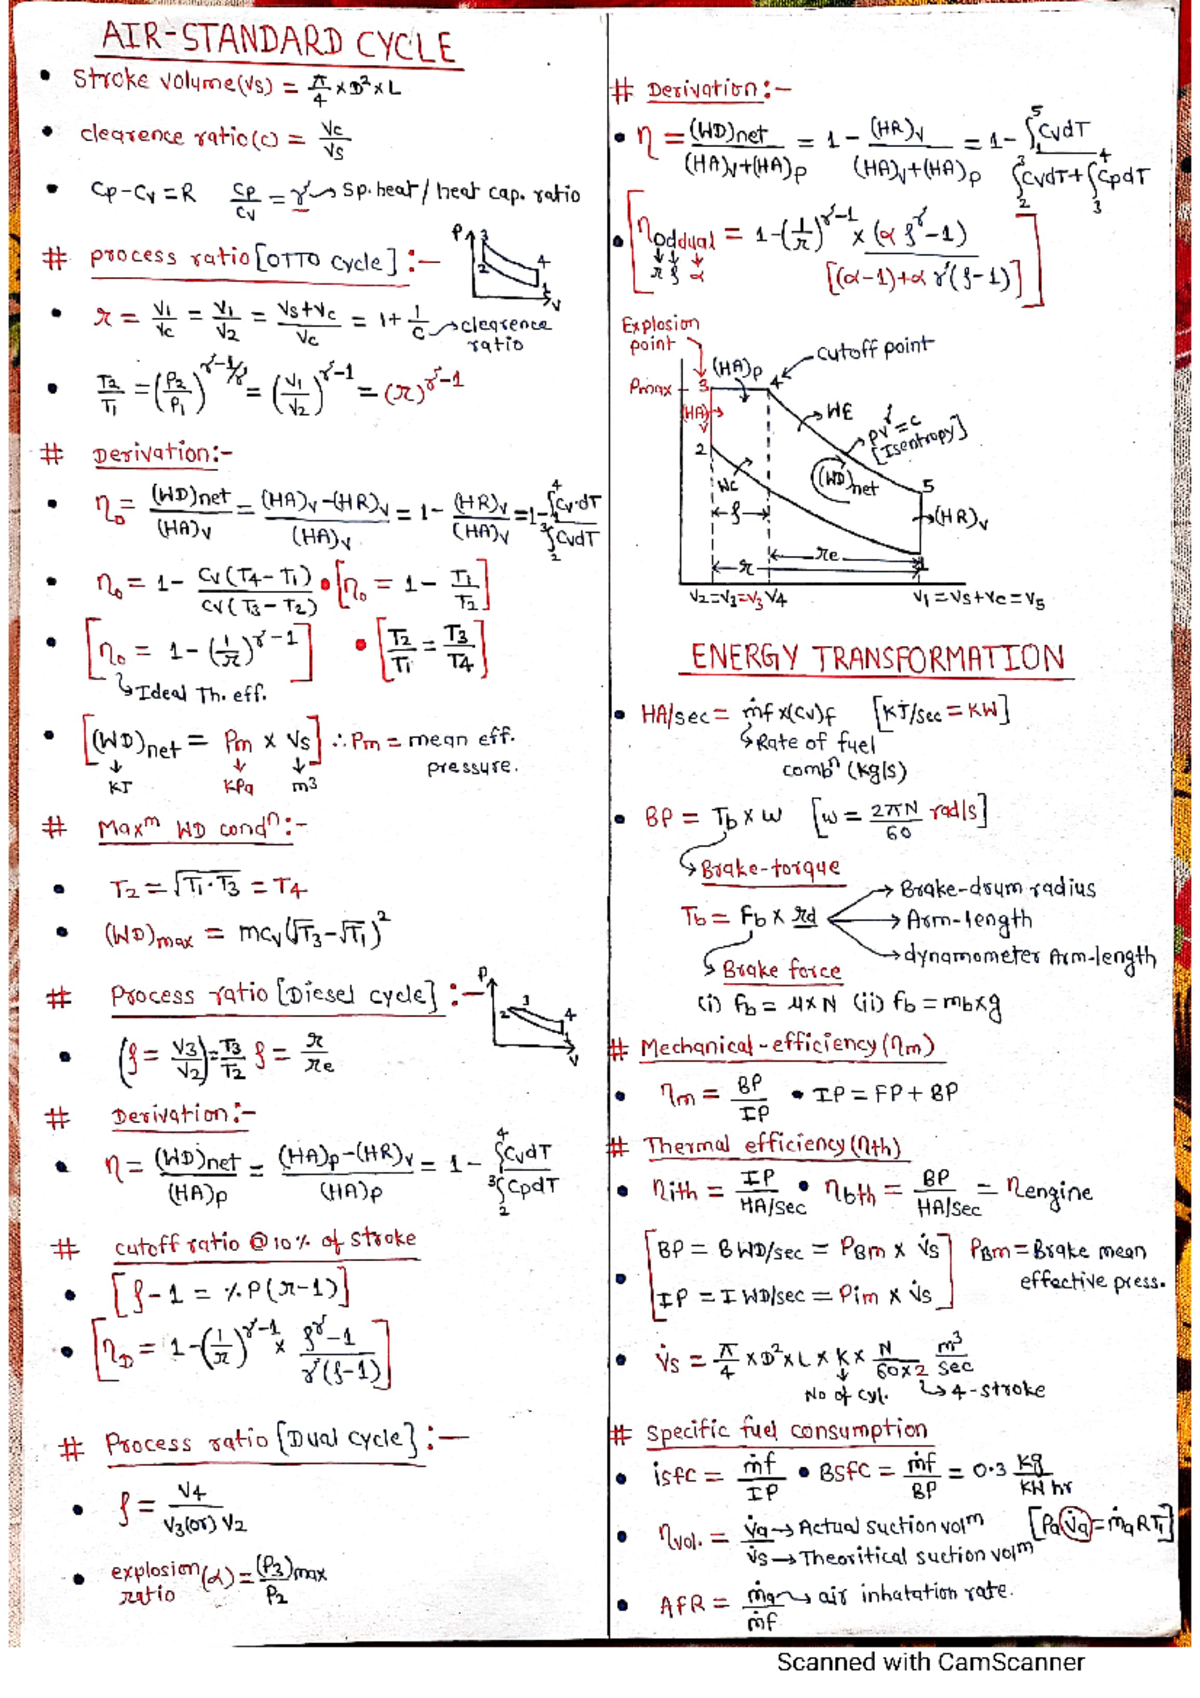 AIR-STANDARD CYCLE
• Stroke volume(Vs) = π/4 × D² × L
• clearence ratio(c) = Vc/Vs
• Cp-Cv = R   Cp/Cv = γ → Sp. heat / heat cap. ratio
# process ratio [OTTO cycle] :-
P 3 2 4 1 V
• r = V1/Vc = V1/V2 = (Vs+Vc)/Vc = 1+ 1/C → clearence ratio
• T2/T1 = (P2/P1)^(γ-1/γ) = (V1/V2)^(γ-1) = (r)^(γ-1)
# Derivation:-
• η₀ = (WD)net/(HA)v = ((HA)v-(HR)v)/(HA)v = 1 - (HR)v/(HA)v = 1- ∫₁⁴ Cv·dT / ∫₂³ CvdT
• η₀ = 1 - Cv(T4-T1)/Cv(T3-T2) • [η₀ = 1 - T1/T2]
• [η₀ = 1-(1/r)^(γ-1)] • [T2/T1 = T3/T4]
↳ Ideal Th. eff.
• [(WD)net = Pm × Vs] ∴ Pm = mean eff. pressure.
↓ KJ ↓ KPa ↓ m³
# Maxᵐ WD condⁿ:-
• T2 = √(T1·T3) = T4
• (WD)max = mcv(√T3-√T1)²
# Process ratio [Diesel cycle] :-
P 2 3 4 V
• (ρ = V3/V2) = T3/T2   ρ = r/re
# Derivation:-
• η = (WD)net/(HA)p = ((HA)p-(HR)v)/(HA)p = 1 - ∫₁⁴ CvdT / ∫₂³ CpdT
# cutoff ratio @ 10% of stroke
• [ρ-1 = %P(r-1)]
• [η_D = 1-(1/r)^(γ-1) × (ρ^γ-1)/(γ(ρ-1))]
# Process ratio [Dual cycle] :-
• ρ = V4/(V3(or) V2)
• explosion ratio (α) = (P3)max/P2
# Derivation:-
• η = (WD)net/((HA)v+(HA)p) = 1 - (HR)v/((HA)v+(HA)p) = 1- ∫₁⁵ CvdT / (∫₂³ CvdT + ∫₃⁴ CpdT)
• [ηoddual = 1-(1/r)^(γ-1) × (αρ^γ-1)/[(α-1)+αγ(ρ-1)]]
↓ ↓ ↓
r ρ α
Explosion point
(HA)p
4 cutoff point
Pmax 3
(HA)v
WE
pv^γ = c
[Isentropy]
2
Wc
(WD)net
5
(HR)v
ρ
re
r
1
V2=V3=V3 V4
V1 = Vs+Vc = V5
ENERGY TRANSFORMATION
• HA/sec = ṁf×(Cv)f [KJ/sec = KW]
↳ Rate of fuel combⁿ (kg/s)
• BP = Tb × w [w = 2πN/60 rad/s]
↳ Brake-torque
Tb = Fb × rd → Brake-drum radius
→ Arm-length
→ dynamometer Arm-length
↳ Brake force
(i) Fb = μ×N (ii) Fb = mb×g
# Mechanical-efficiency (ηm)
• ηm = BP/IP • IP = FP + BP
# Thermal efficiency (ηth)
• ηith = IP/(HA/sec) • ηbth = BP/(HA/sec) = ηengine
• [BP = BWD/sec = PBm × V̇s] PBm = Brake mean effective press.
[IP = IWD/sec = Pim × V̇s]
• V̇s = π/4 × D² × L × K × N/(60×2) m³/sec
↓ No of cyl. ↳ 4-stroke
# Specific fuel consumption
• isfc = ṁf/IP • BSFC = ṁf/BP = 0.3 Kg/KW hr
• ηvol. = V̇a → Actual suction volᵐ / V̇s → Theoritical suction volᵐ [Pa V̇a = ṁa RT1]
• AFR = ṁa/ṁf → air inhatation rate.
Scanned with CamScanner